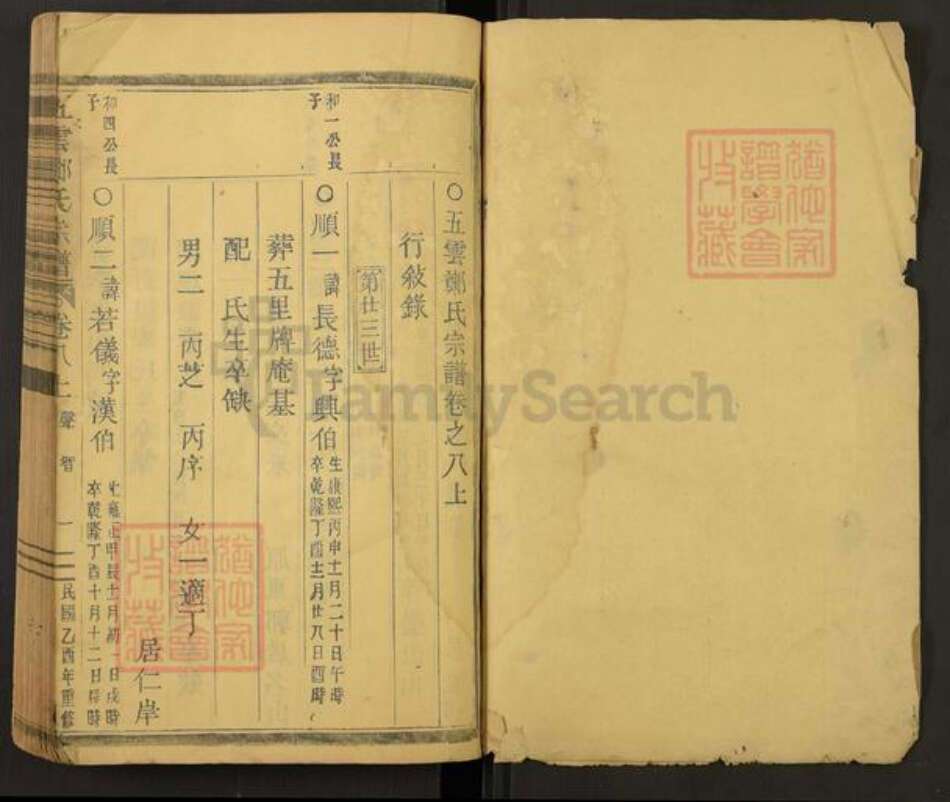 ○五雲鄭氏宗譜卷之八上
行敘錄
第廿三世
和一公長子
○順一諱長德字興伯生康熙丙申十一月二十日午時卒乾隆丁酉十二月廿八日酉時
葬五里牌庵基
配 氏生卒缺
男二 丙芝 丙序 女一適丁
居仁岸
和四公長子
○順二諱若儀字漢伯生雍正甲辰十一月初一日戌時卒乾隆丁酉十月十二日時
五雲鄭氏宗譜 卷八上 聲 智 一 民國乙酉年重修
猶他家譜學會收藏
猶他家譜學會收藏
FamilySearch